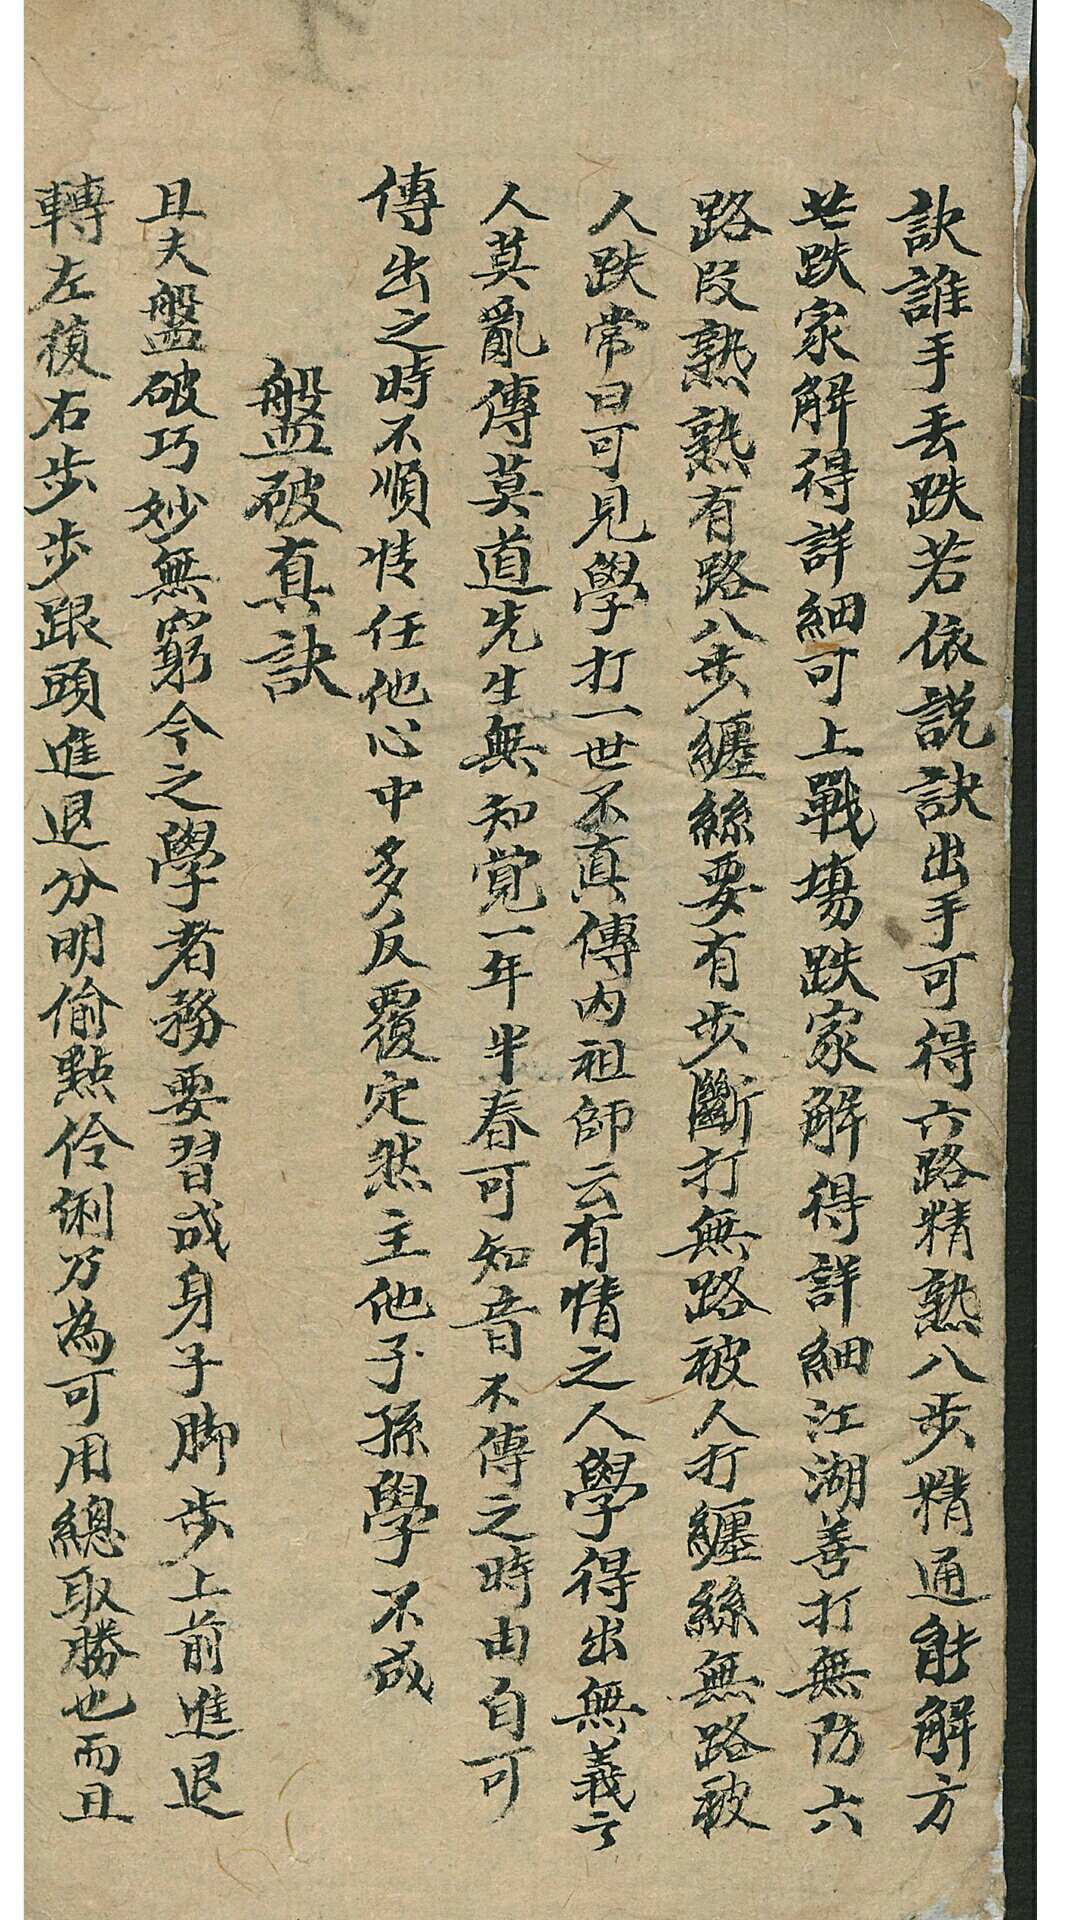 訣誰手丟跌若依說訣出手可得六路精熟八步精通能解方
跌家解得詳細可上戰場跌家解得詳細江湖善打無防六
路段熟熟有路八步纏絲要有步斷打無路被人打纏絲無路被
人跌常曰可見學打一世不真傳內祖師云有情之人學得出無義之
人莫亂傳莫道先生無知覺一年半春可知音不傳之時由自可
傳出之時不順情任他心中多反覆定然主他子孫學不成
盤破真訣
且夫盤破巧妙無窮今之學者務要習成身子腳步上前進退
轉左復右步步跟頭進退分明偷點伶俐乃為可用總取勝也而且